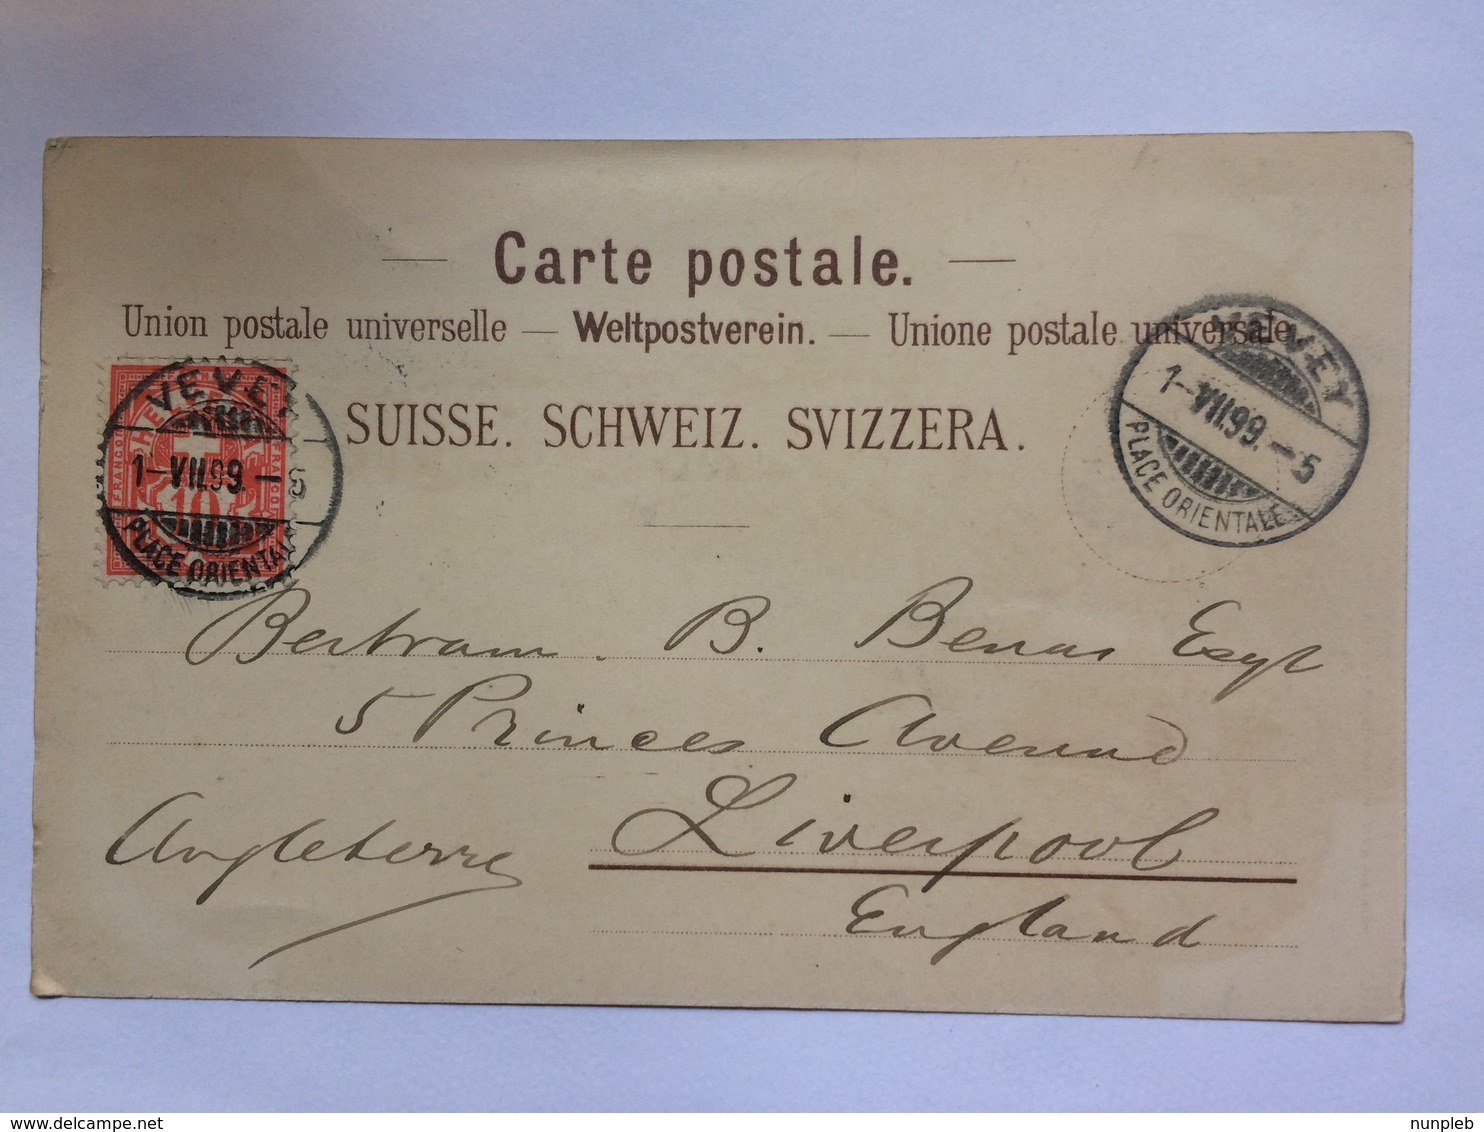 Carte postale.
Union postale universelle — Weltpostverein. — Unione postale universale
SUISSE. SCHWEIZ. SVIZZERA.
VEVEY
1-VII.99.-5
PLACE ORIENTALE
VEVEY
1-VII.99.-5
PLACE ORIENTALE
FRANCO
HELVETIA
10
FRANCO
Bertram. B. Benas Esqr
5 Princes Avenue
Liverpool
Angleterre
England
delcampe.net
nunpleb